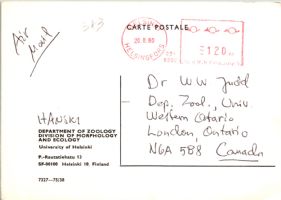 Air
Mail
CARTE POSTALE
HELSINKI
HELSINGFORS
20.8.80
120
Dr W W Judd
Dep. Zool., Univ.
Western Ontario
London, Ontario
N6A 5B8 Canada
HANSKI
DEPARTMENT OF ZOOLOGY
DIVISION OF MORPHOLOGY
AND ECOLOGY
University of Helsinki
P.-Rautatiekatu 13
SF-00100 Helsinki 10, Finland
7327—75/58